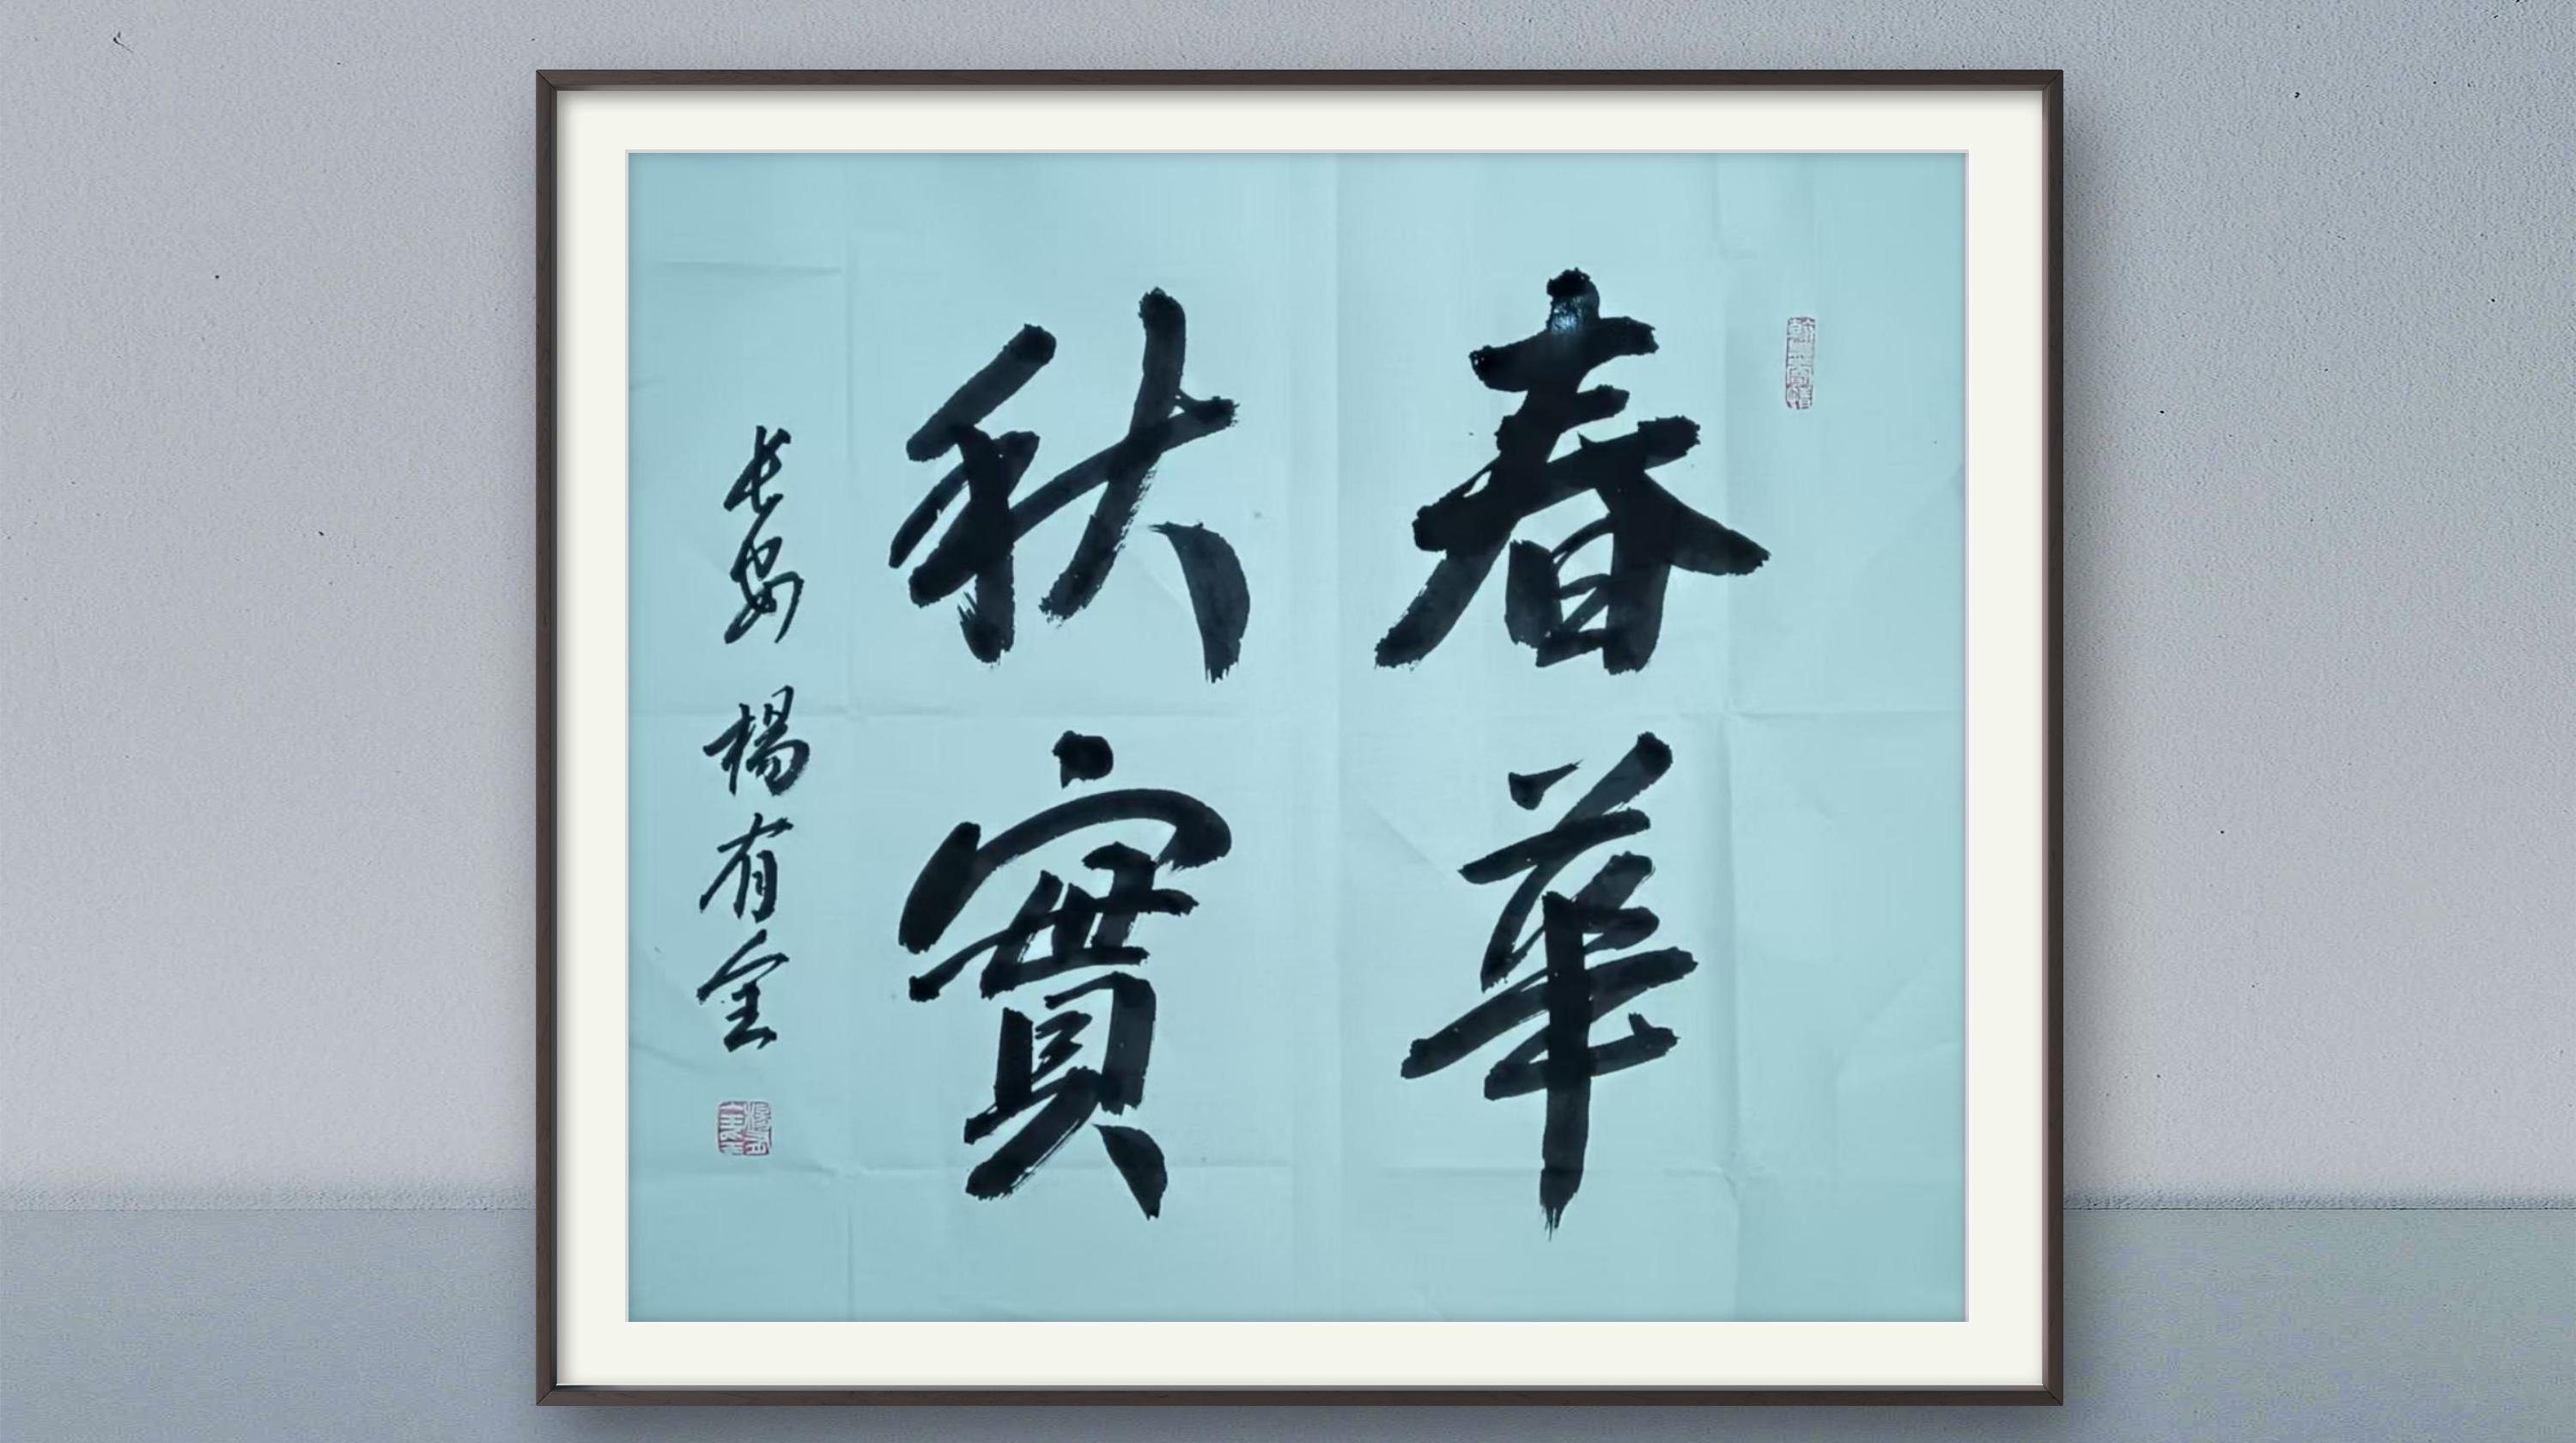 春華
秋實
长安 楊有金